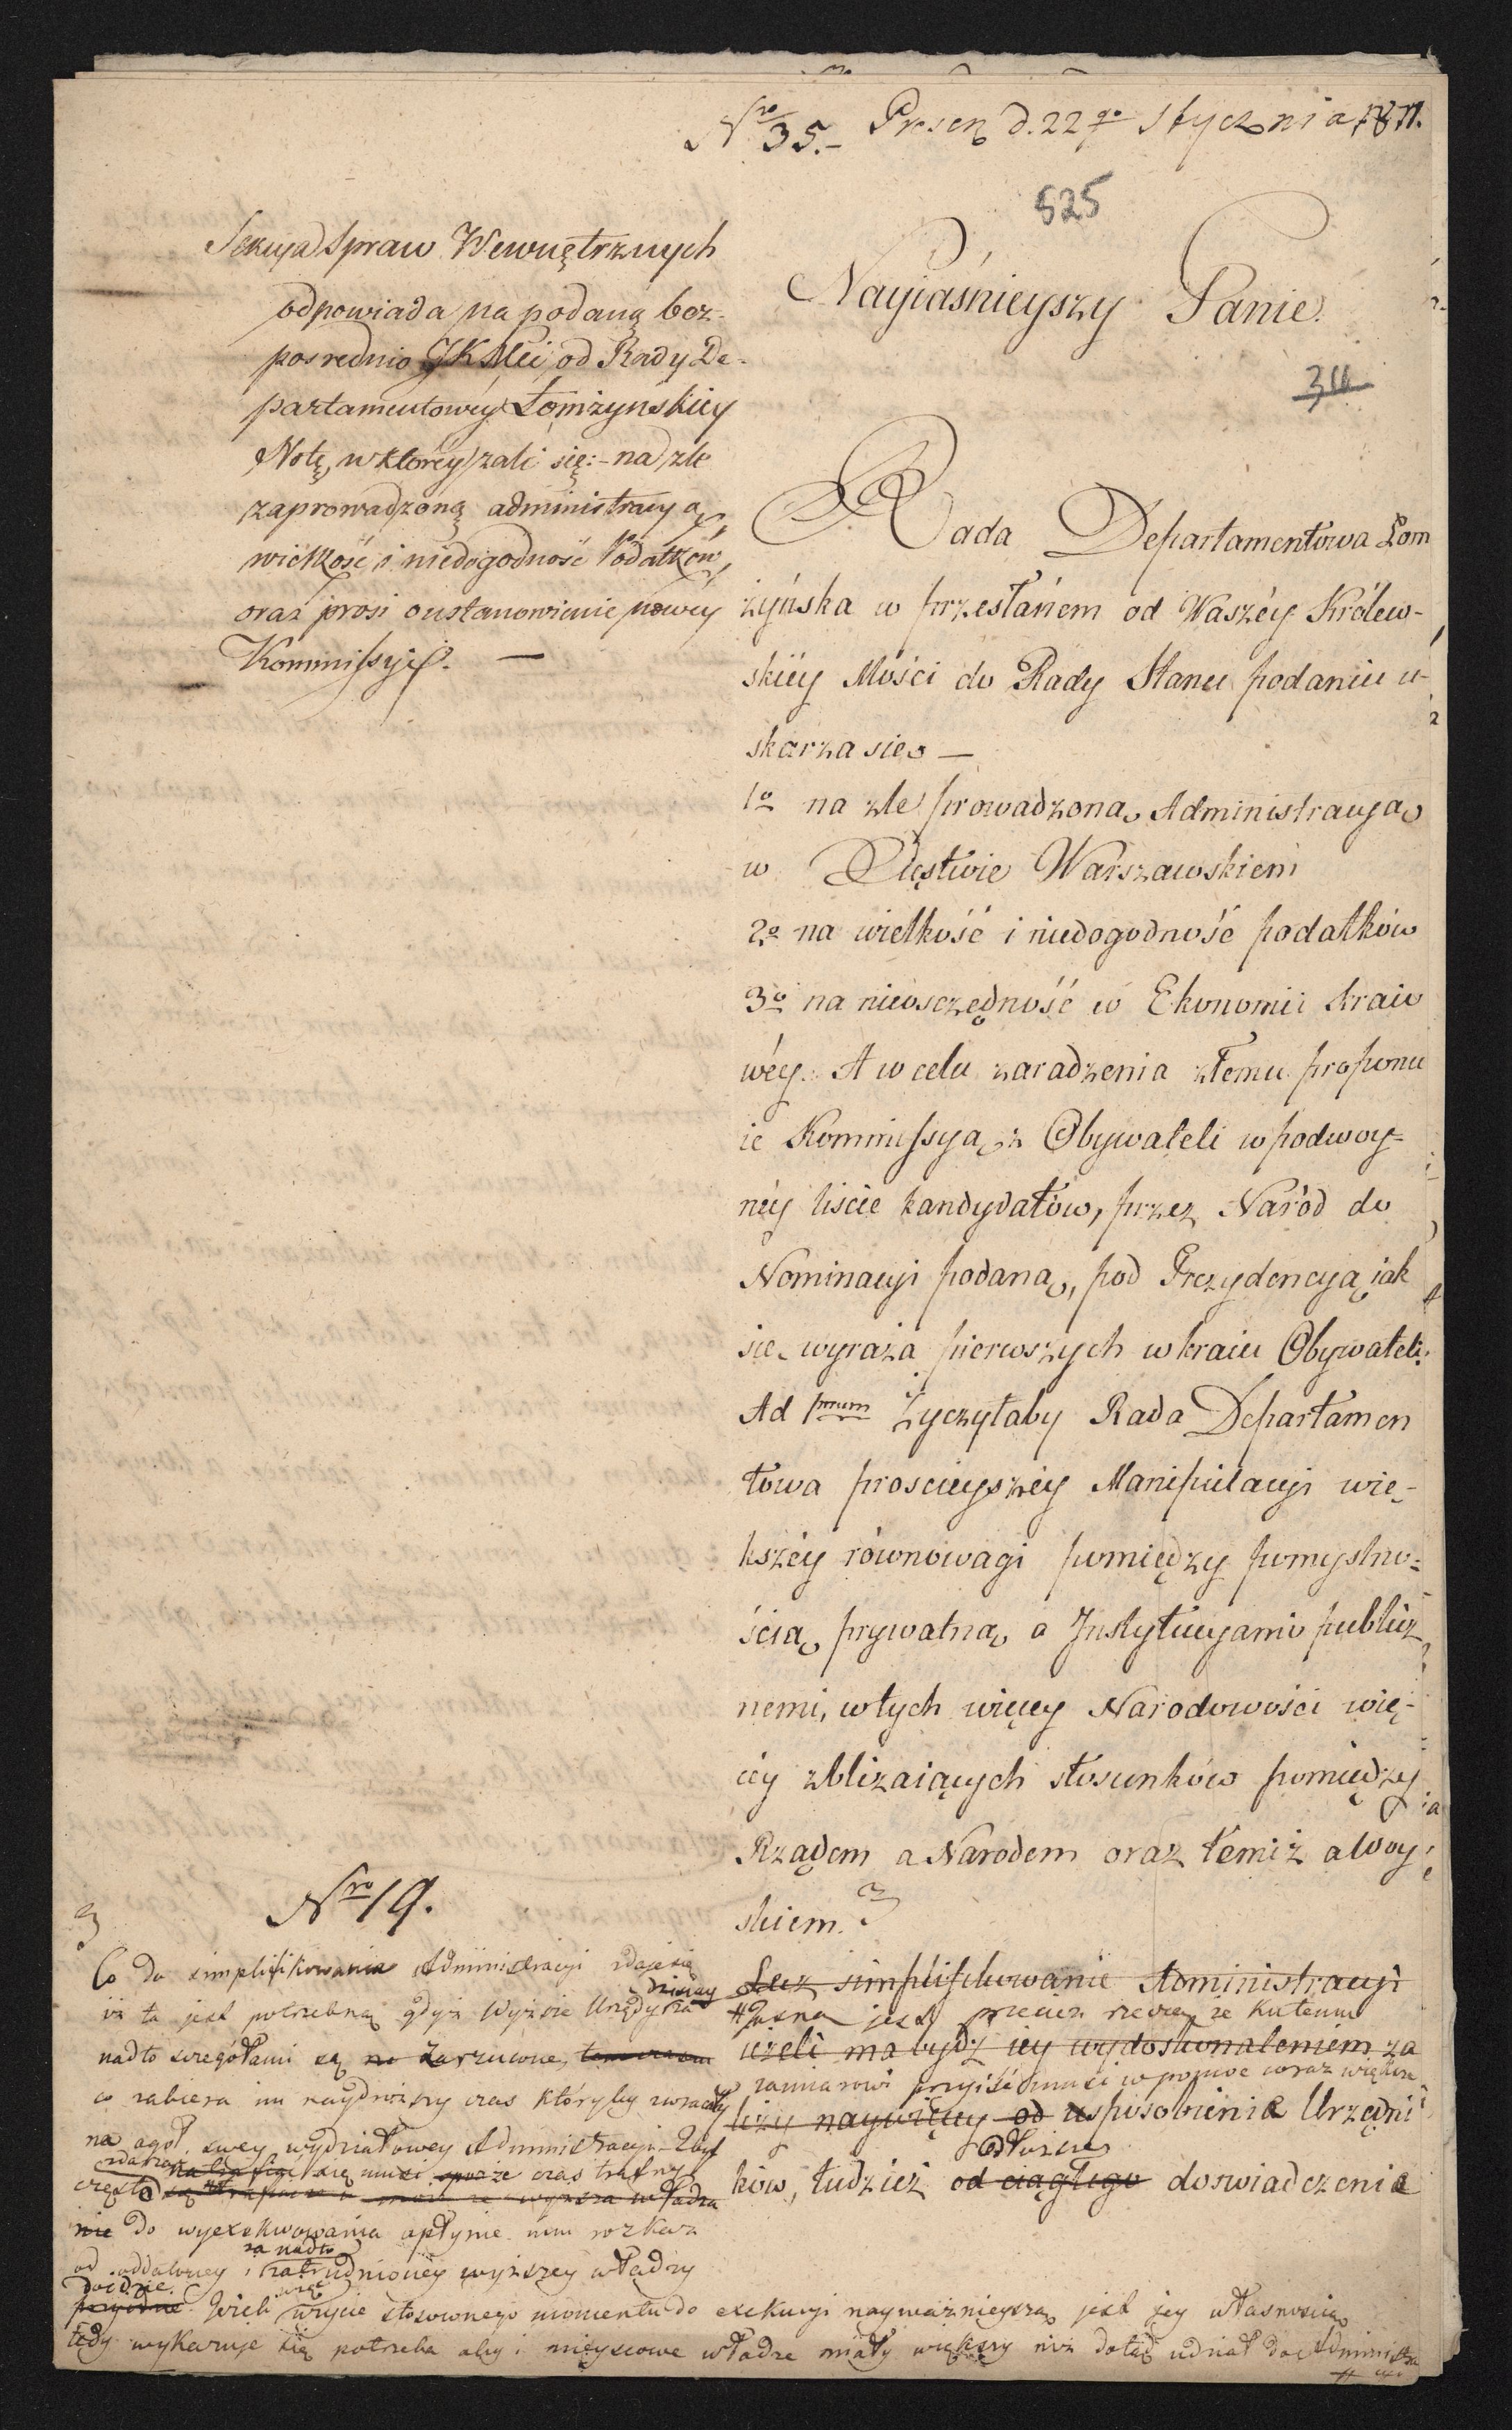 Nro 35.– Presen. d. 22go Stycznia 1811.
525
Sekcya Spraw Wewnętrznych
odpowiada na podaną bez-
posrednio JKMci od Rady De-
partamentowey Łomżynskiey
Notę, w ktorey żali się:- na zle
zaprowadzoną administracyą,
wielkość i niedogodność Podatków,
oraz prosi o ustanowienie nowéy
Kommissyji. —
Nayiaśnieyszy Panie.
311
Rada Departamentowa Łom
żyńska w przesłáném od Waszéy Królew-
skiéy Mości do Rady Stanu podaniu u-
skarza się —
1o na zle prowadzoną Administracyą
w Xięstwie Warszawskiem
2o na wielkość i niedogodność podatków
3o na nieosczędność w Ekonomii kraio
wéy. A w celu zaradzenia złemu proponu
ie Kommissyą z Obywateli w podwoy=
néy liście kandydatów, przez Naród do
Nominacyi podaną, pod Prezydencyą iak
się wyraża pierwszych w kraiu Obywateli.
Ad 1mum Życzyłaby Rada Departamen
towa proscieyszéy Manipulacyi wię-
kszéy równowagi pomiędzy pomyslno-
ścią prywatną a Instytucyami publicz
nemi, w tych więcey Narodowości wię-
céy zbliżaiących stosunków pomiędzy
Rządem a Narodem oraz témiż a Woy
skiem.
Lecz simplifikowanie Administracyi
# Jasną jest przecież rzeczą że ku temu
ieżeli ma bydź iey wydoskonaleniem za
zamiarowi przyiść musi w pomoc coraz większe
leży naywięcey od usposobienia Urzędni
ków, tudzież od ciągłego doswiadczenia
dłuższe
Nro 19.
Co do simplifikowania Administracyi zdaje się
iż ta jest potrzebną gdyż Wyższe Urzędy są
dzisiay
nadto sczegółami są zarzucone,
co zabiera im naydroższy czas któryby zwracały
na ogół swey wydziałowey Administracyi. Zbyt
często się musi czas trafny
nie do wyexekwowania upłynie nim rozkaz
od oddaloney i zatrudnioney wyższey władzy
za nadto
dojdzie. Jeżeli użycie stosownego momentu do exekucyi nayważnieyszą jest jey własnością
tedy wykazuje się potrzeba aby i mieyscowe władze miały większy niż dotąd udział do Administra